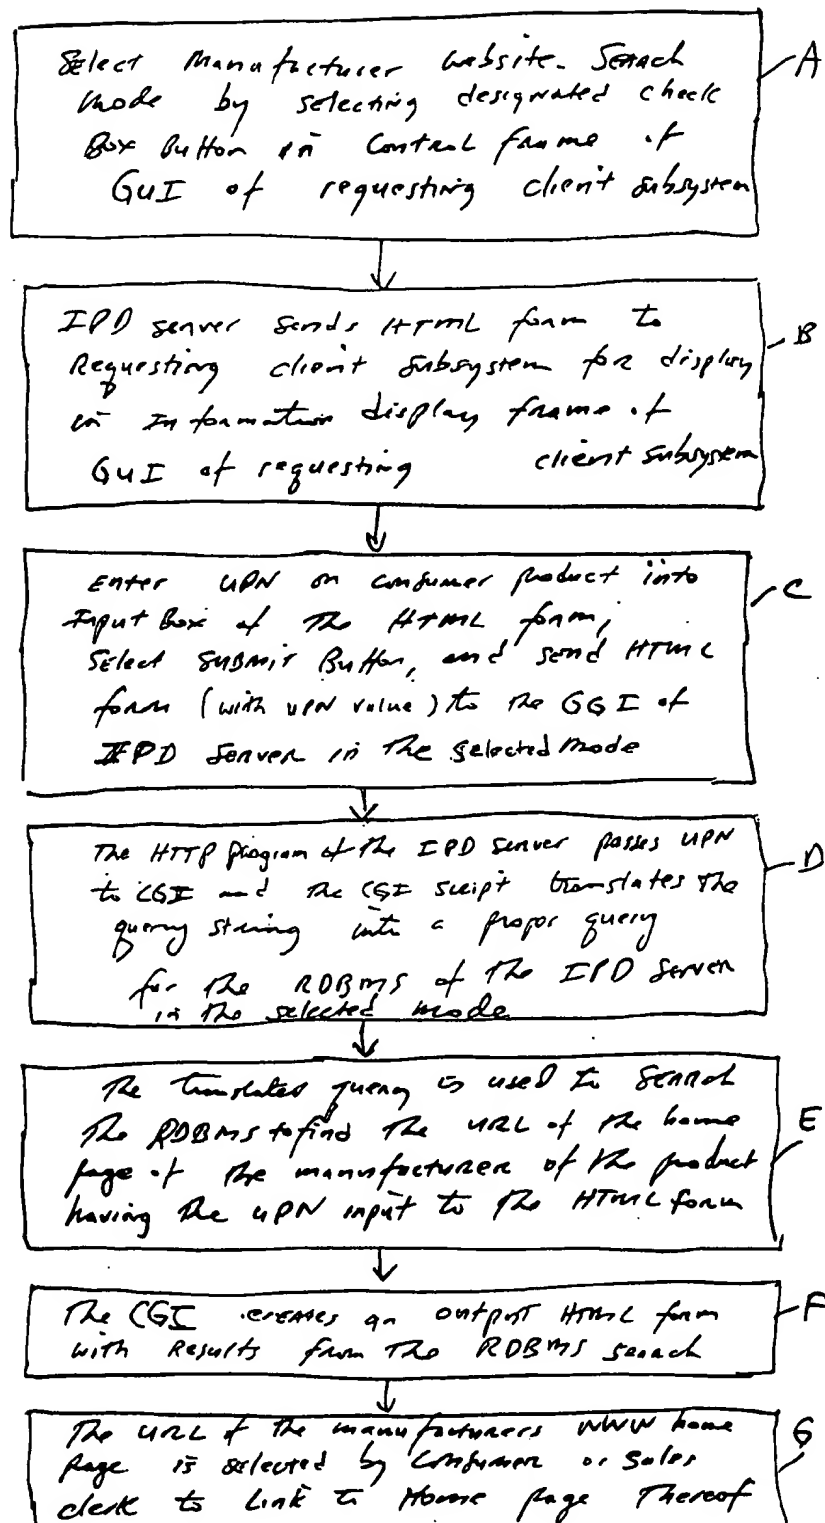 Select Manufacturer Website Search
Mode by selecting designated check
Box Button in Control frame of
GUI of requesting client subsystem
A
IPD server sends HTML form to
Requesting client subsystem for display
in Information display frame of
GUI of requesting client subsystem
B
Enter UPN on consumer product into
Input Box of the HTML form,
Select SUBMIT Button, and send HTML
form (with UPN value) to the GGI of
IPD Server in the selected mode
C
The HTTP program of the IPD Server passes UPN
to CGI and the CGI script translates the
query string into a proper query
for the RDBMS of the IPD Server
in the selected mode
D
The translated query is used to Search
the RDBMS to find the URL of the home
page of the manufacturer of the product
having the UPN input to the HTML form
E
The CGI creates an output HTML form
with Results from the RDBMS search
F
The URL of the manufacturers WWW home
page is selected by Consumer or Sales
clerk to Link to Home page Thereof
G